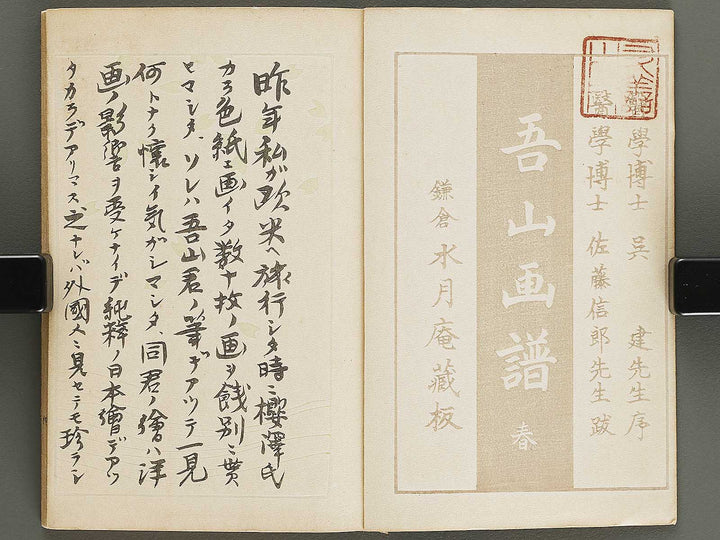 學博士 呉 建先生序
醫學博士 佐藤信郎先生跋
吾山画譜 春
鎌倉 水月庵藏板
昨年私が欧米ヘ旅行シタ時ニ櫻澤氏
カラ色紙ニ画イタ数十枚ノ画ヲ餞別ニ貰
ヒマシタ、ソレハ吾山君ノ筆デアツテ一見
何トナク懐シイ気ガシマシタ、同君ノ繪ハ洋
画ノ影響ヲ受ケナイデ純粋ノ日本繪デアツ
タカラデアリマス、之ナレバ外國人ニ見セテモ珍ラシ